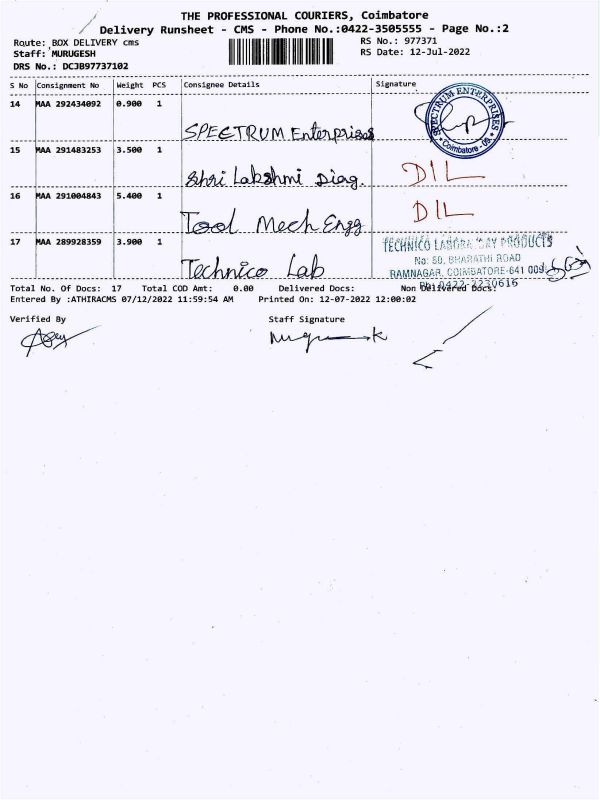 THE PROFESSIONAL COURIERS, Coimbatore
Delivery Runsheet - CMS - Phone No.:0422-3505555 - Page No.:2
Route: BOX DELIVERY cms
RS No.: 977371
Staff: MURUGESH
RS Date: 12-Jul-2022
DRS No.: DCJB97737102
S No Consignment No Weight PCS Consignee Details Signature
14 MAA 292434092 0.900 1
SPECTRUM Enterprises
SPECTRUM ENTERPRISES
Coimbatore - 09
15 MAA 291483253 3.500 1
Shri Lakshmi Diag. DIL
16 MAA 291004843 5.400 1
Tool Mech Engg DIL
17 MAA 289928359 3.900 1
Technico Lab
TECHNICO PRODUCTS
No: 50, BHARATHI ROAD
RAMNAGAR, COIMBATORE-641 009.
Ph: 0422-2230616
Total No. Of Docs: 17 Total COD Amt: 0.00 Delivered Docs: Non Delivered Docs:
Entered By :ATHIRACMS 07/12/2022 11:59:54 AM Printed On: 12-07-2022 12:00:02
Verified By Staff Signature